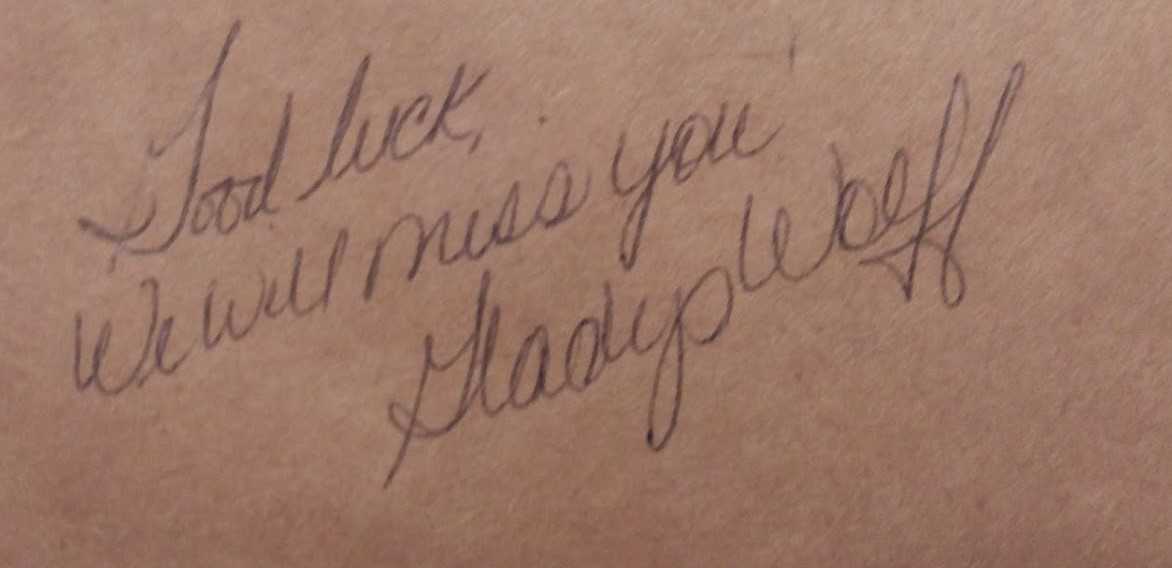 Good luck,
We will miss you
Gladys Wolff